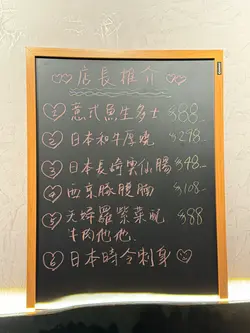 店長推介
① 意式魚生多士 $88
② 日本和牛厚燒 $298
③ 日本長崎雲仙腸 $48
④ 西京豚腩 $108
⑤ 天婦羅紫菜 $88
牛肉他他
⑥ 日本時令刺身